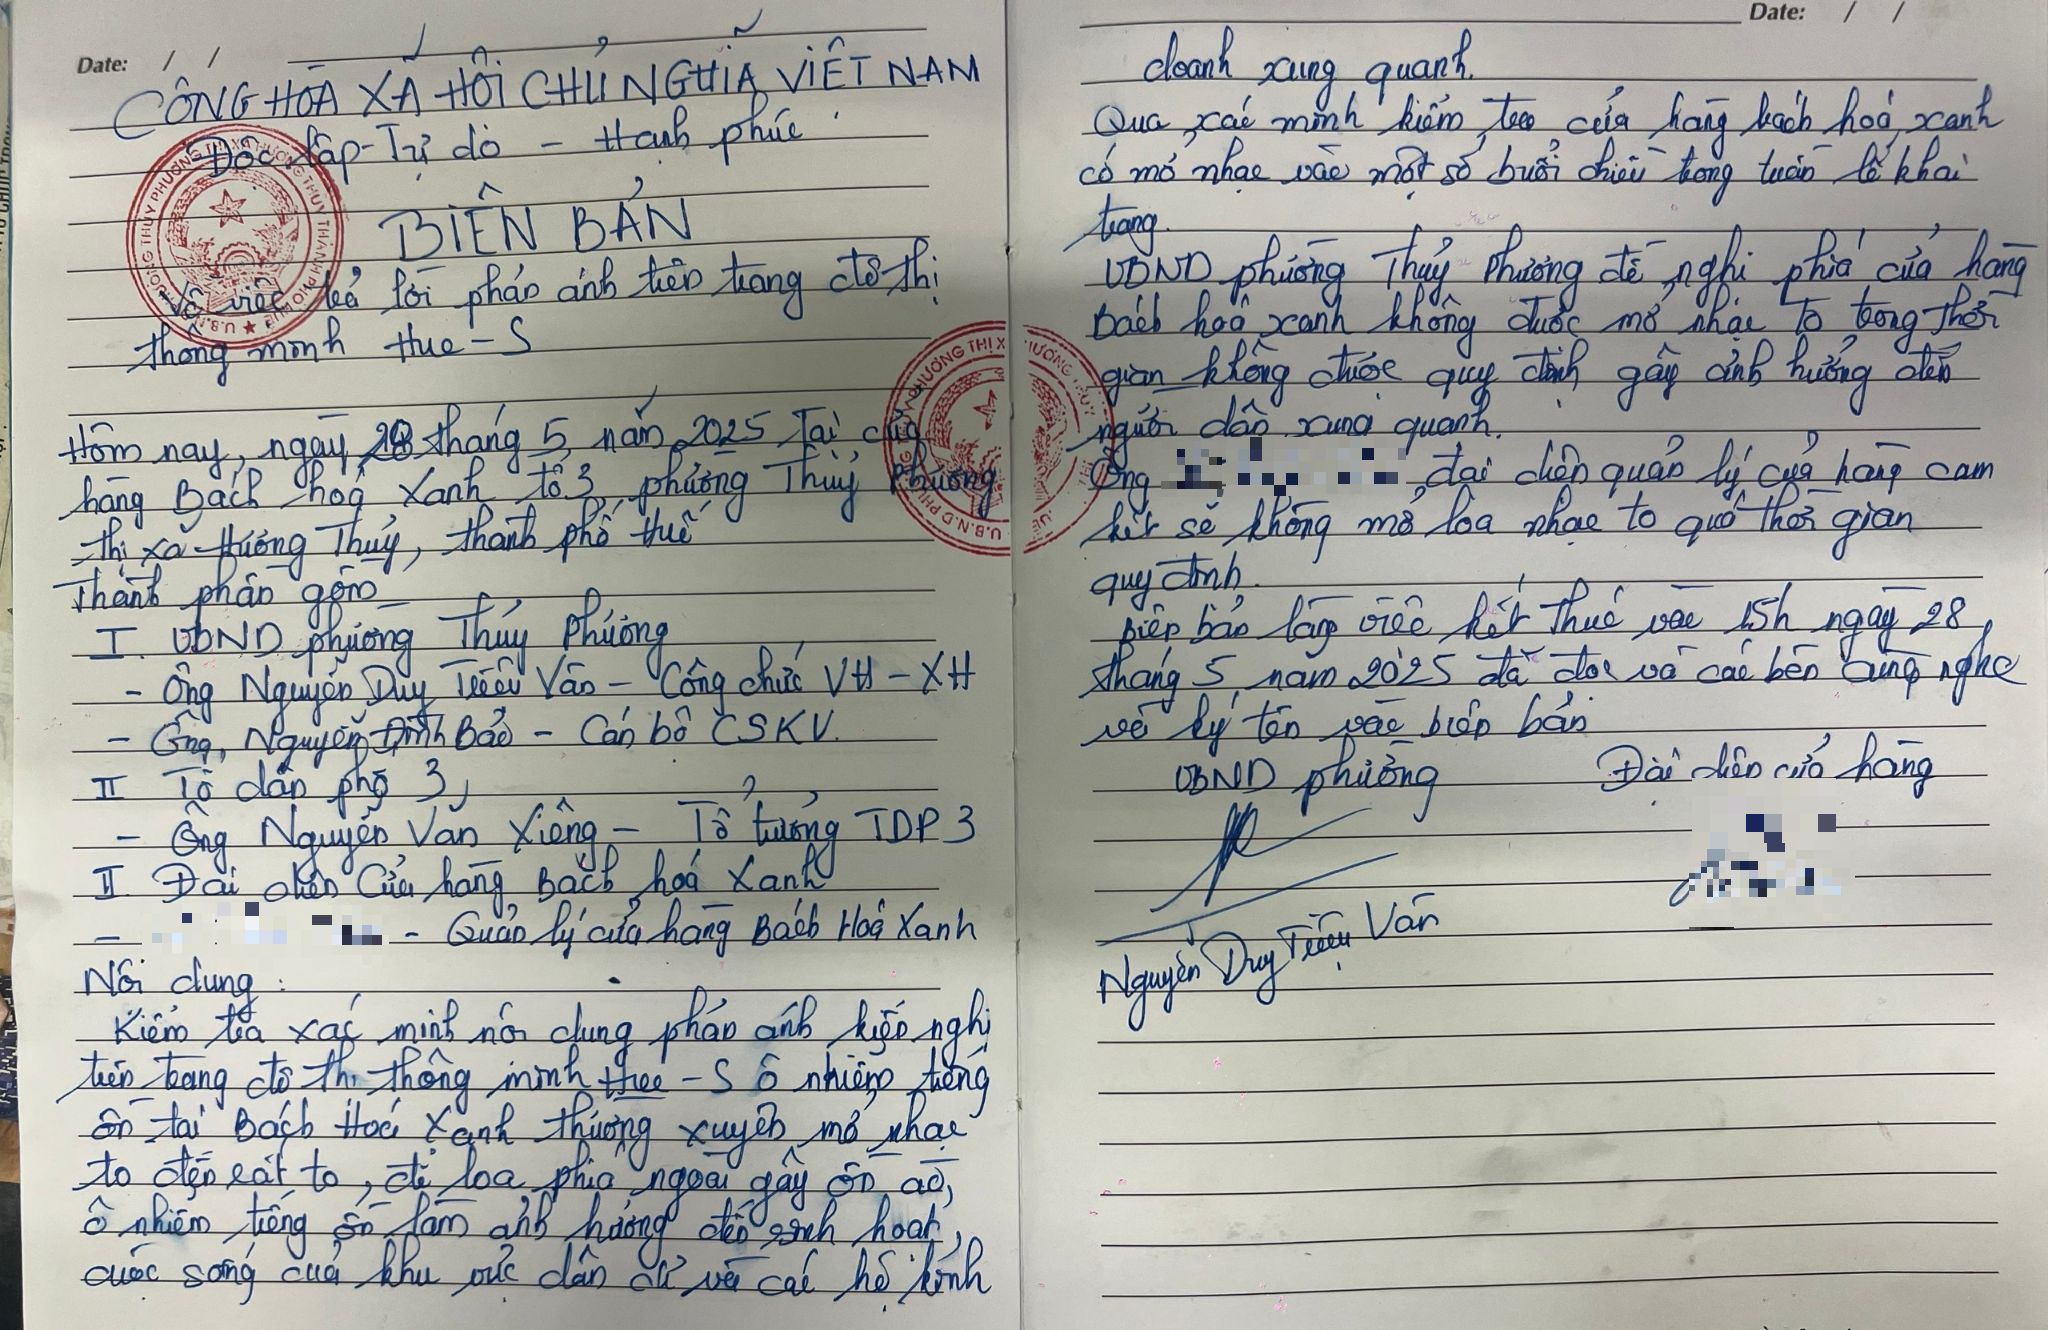 Date: / /
CỘNG HÒA XÃ HỘI CHỦ NGHĨA VIỆT NAM
Độc lập - Tự do - Hạnh phúc
BIÊN BẢN
Về việc trả lời phản ánh trên trang đô thị
thông minh Hue-S
Hôm nay, ngày 28 tháng 5 năm 2025 Tại cửa
hàng Bách hoá Xanh tổ 3, phường Thuỷ Phương
thị xã Hương Thuỷ, thành phố Huế
Thành phần gồm
I. UBND phường Thủy Phương
- Ông Nguyễn Duy Triều Vân - Công chức VH-XH
- Ông, Nguyễn Đình Bảo - Cán bộ CSKV.
II Tổ dân phố 3,
- Ông Nguyễn Văn Xiêng - Tổ trưởng TDP 3
II. Đại diện Cửa hàng Bách hoá Xanh
- - Quản lý cửa hàng Bách Hoá Xanh
Nội dung:
Kiểm tra xác minh nội dung phản ánh kiến nghị
trên trang đô thị thông minh Hue-S ô nhiễm tiếng
ồn tại Bách Hoá Xanh thường xuyên mở nhạc
to đến rất to, để loa phía ngoài gây ồn ào,
ô nhiễm tiếng ồn làm ảnh hưởng đến sinh hoạt,
cuộc sống của khu vực dân cư và các hộ kinh
Date: / /
doanh xung quanh.
Qua xác minh kiểm tra cửa hàng bách hoá xanh
có mở nhạc vào một số buổi chiều trong tuần lễ khai
trương.
UBND phường Thủy Phương đề nghị phía cửa hàng
Bách hoá xanh không được mở nhạc to trong thời
gian không được quy định gây ảnh hưởng đến
người dân xung quanh.
Ông đại diện quản lý cửa hàng cam
kết sẽ không mở loa nhạc to quá thời gian
quy định.
Biên bản làm việc kết thúc vào 15h ngày 28
tháng 5 năm 2025 đã đọc và các bên cùng nghe
và ký tên vào biên bản
UBND phường Đại diện cửa hàng
Nguyễn Duy Triều Vân